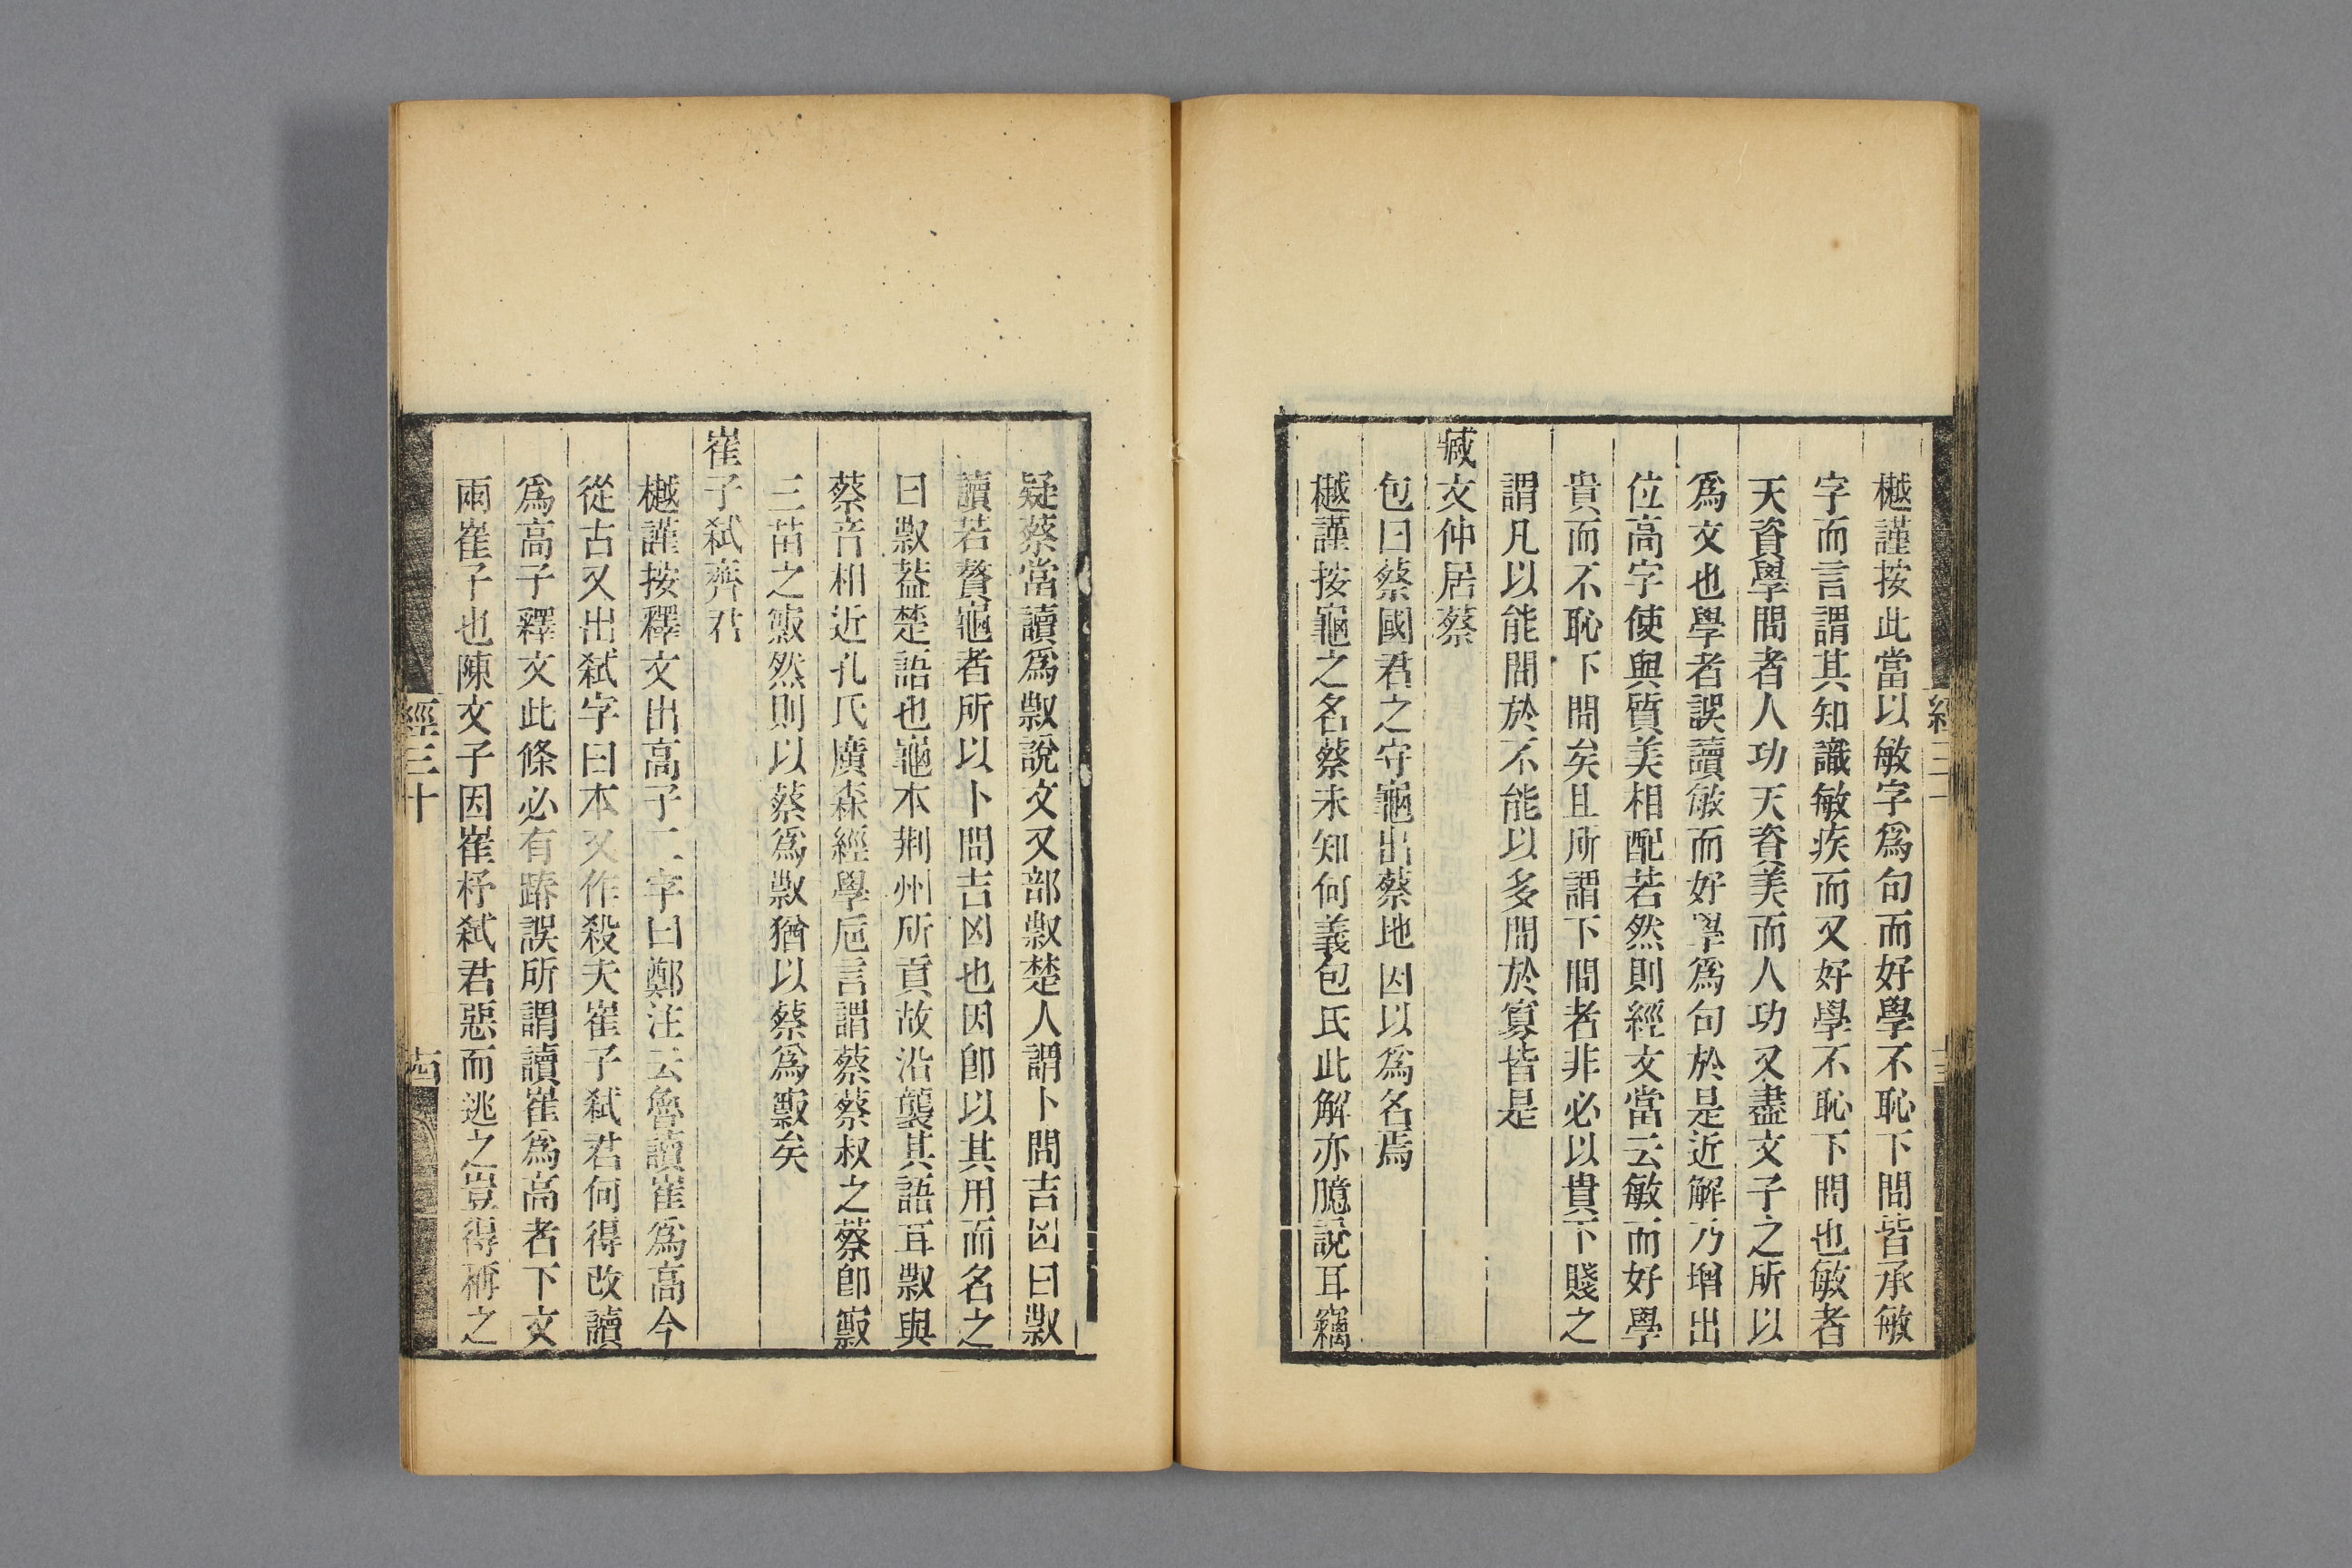 樾謹按此當以敏字爲句而好學不恥下問皆承敏
字而言謂其知識敏疾而又好學不恥下問也敏者
天資學問者人功天資美而人功又盡文子之所以
爲文也學者誤讀敏而好學爲句於是近解乃增出
位高字使與質美相配若然則經文當云敏而好學
貴而不恥下問矣且所謂下問者非必以貴下賤之
謂凡以能問於不能以多問於寡皆是
臧文仲居蔡
包曰蔡國君之守龜出蔡地因以爲名焉
樾謹按龜之名蔡未知何義包氏此解亦臆說耳竊
疑蔡當讀爲㱁說文又部㱁楚人謂卜問吉凶曰㱁
讀若贅龜者所以卜問吉凶也因卽以其用而名之
曰㱁葢楚語也龜本荆州所貢故沿襲其語耳㱁與
蔡音相近孔氏廣森經學巵言謂蔡蔡叔之蔡卽𥨥
三苗之𥨥然則以蔡爲㱁猶以蔡爲𥨥矣
崔子弑齊君
樾謹按釋文出高子二字曰鄭注云魯讀崔爲高今
從古又出弑字曰本又作殺夫崔子弑君何得改讀
爲高子釋文此條必有踳誤所謂讀崔爲高者下文
兩崔子也陳文子因崔杼弑君惡而逃之豈得稱之
經三十
古